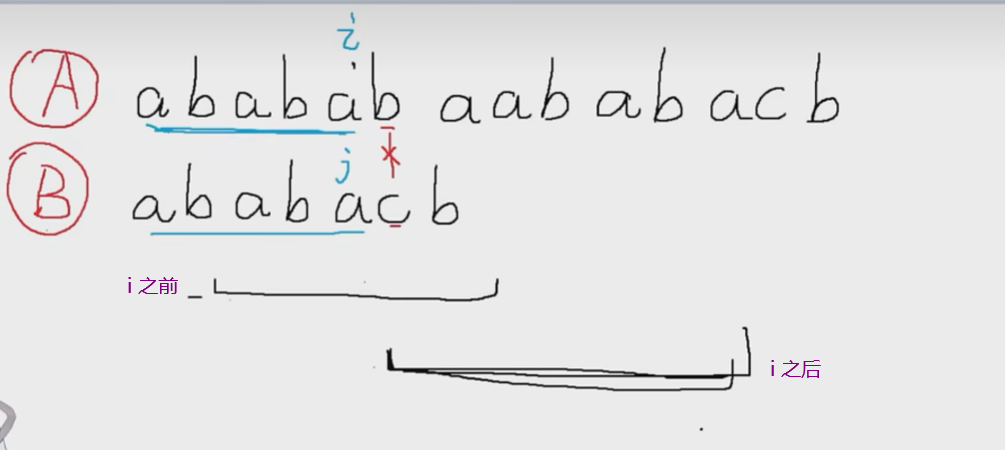 i
A ababab aababacb
j *
B ababacb
i 之前
i 之后